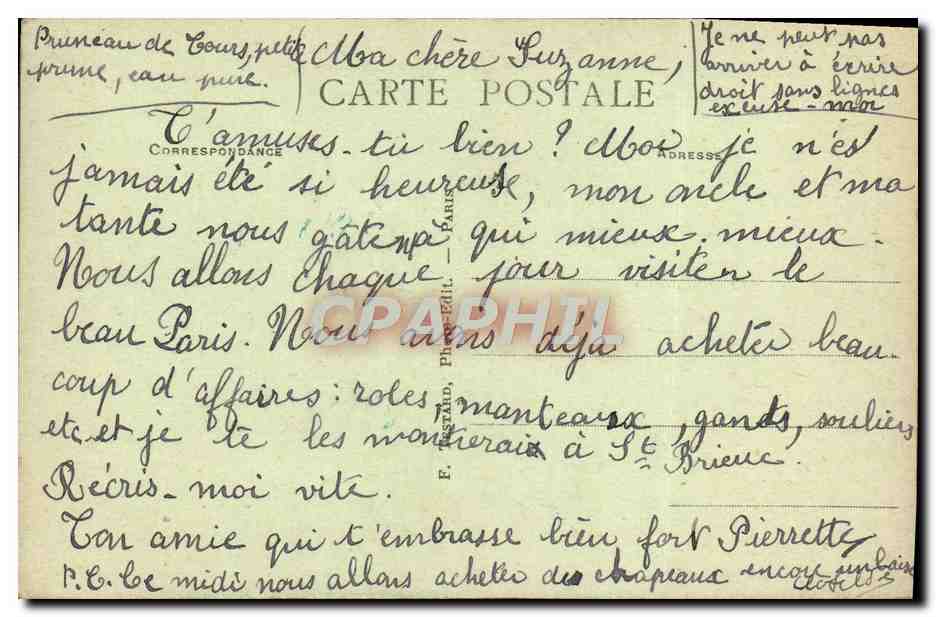 Pruneau de Tours, petite
prune, eau pure.
Ma chère Suzanne,
Je ne peut pas
arriver à écrire
droit sans lignes
excuse-moi
CARTE POSTALE
CORRESPONDANCE
ADRESSE
T'amuses-tu bien ? Moi je n'és
jamais été si heureuse, mon oncle et ma
tante nous gâte à qui mieux mieux.
Nous allons chaque jour visiter le
beau Paris. Nous avons déjà acheter beau-
coup d'affaires : robes, manteaux, gants, souliers
etc et je te les montrerai à St Brieuc.
Récris-moi vite.
Ton amie qui t'embrasse bien fort Pierrette
P.S. Ce midi nous allons acheter des chapeaux encore un baiser
F. TESTARD, Photo-Edit. — PARIS
CPAPHIL